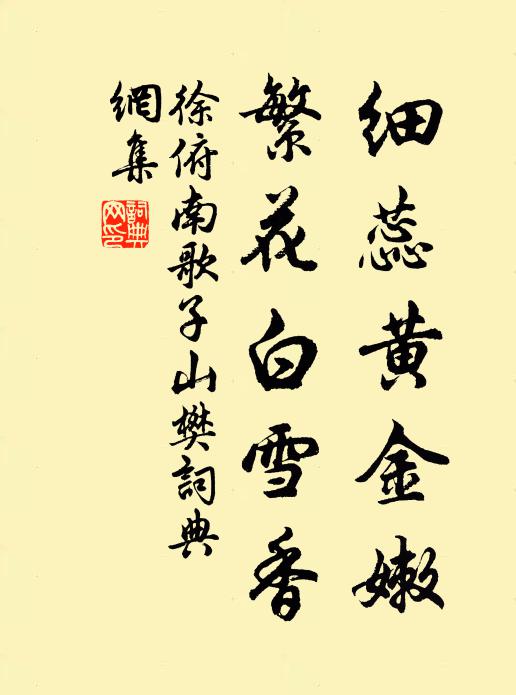 细蕊黄金嫩
繁花白雪香
徐俯南歌子山樊詞典
網集
詞典
网印